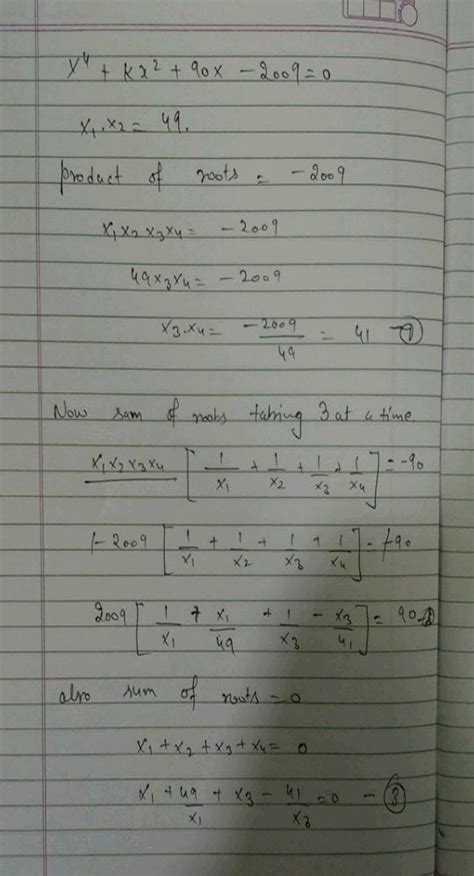 x⁴ + Kx² + 90x - 2009 = 0
x₁.x₂ = 49.
product of roots = -2009
x₁x₂x₃x₄ = -2009
49x₃x₄ = -2009
x₃.x₄ = -2009/49 = 41 -①
Now sum of roots taking 3 at a time.
x₁x₂x₃x₄ [1/x₁ + 1/x₂ + 1/x₃ + 1/x₄] = -90
-2009 [1/x₁ + 1/x₂ + 1/x₃ + 1/x₄] = -90
2009 [1/x₁ + x₁/49 + 1/x₃ - x₃/41] = 90 -②
also sum of roots = 0
x₁ + x₂ + x₃ + x₄ = 0
x₁ + 49/x₁ + x₃ - 41/x₃ = 0 - ③